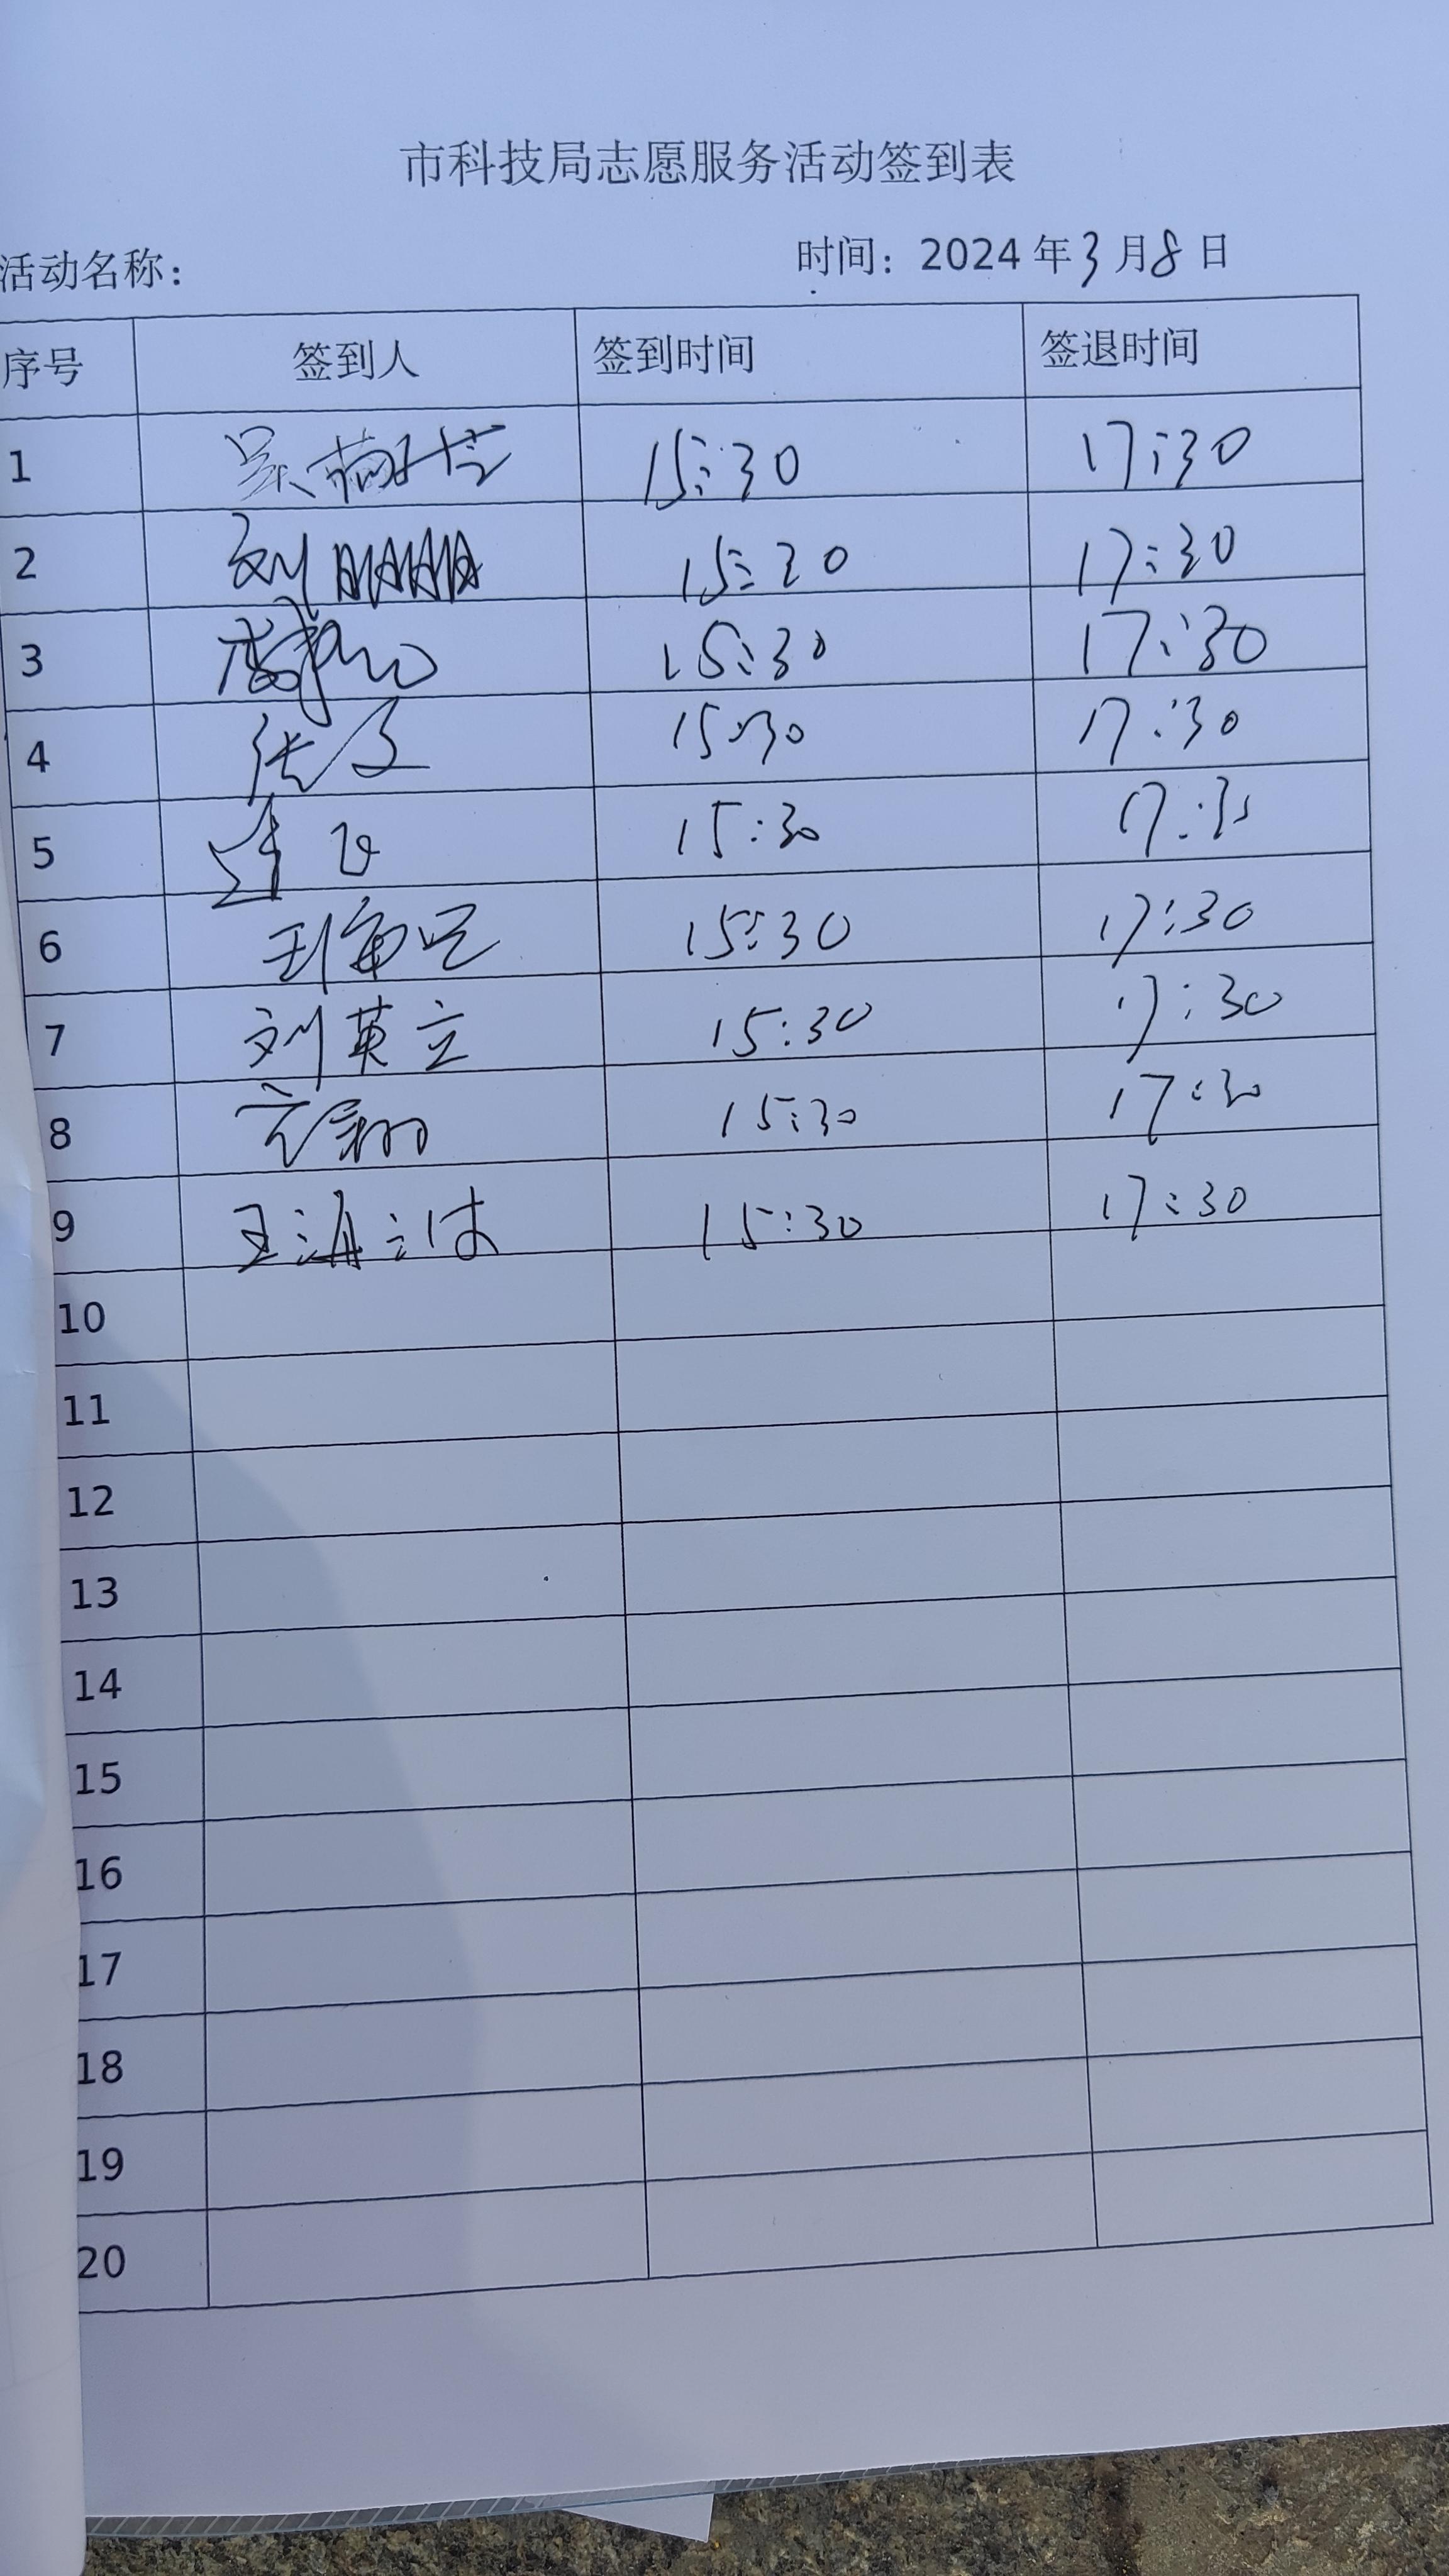 市科技局志愿服务活动签到表
活动名称： 时间：2024年3月8日
序号 签到人 签到时间 签退时间
1 15:30 17:30
2 刘朋朋 15:30 17:30
3 15:30 17:30
4 张 15:30 17:30
5 15:30 17:30
6 15:30 17:30
7 刘英立 15:30 17:30
8 15:30 17:30
9 王海波 15:30 17:30
10
11
12
13
14
15
16
17
18
19
20